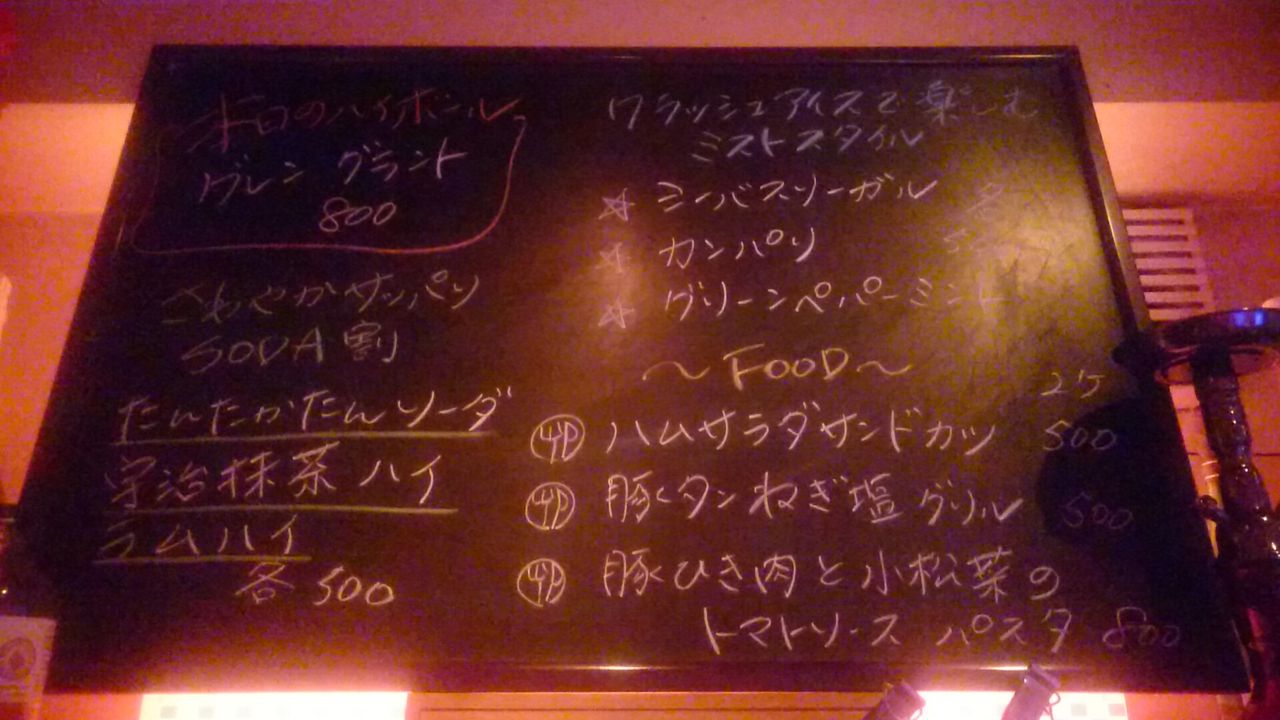 本日のハイボール
グレン グラント
800
さわやかサッパリ
SODA割
たんたかたんソーダ
宇治抹茶ハイ
ラムハイ
各 500
クラッシュアイスで楽しむ
ミストスタイル
☆ シンバスソーガル 各
☆ カンパリ
☆ グリーンペパーミント
~ FOOD ~
2ケ
ハムサラダサンドカツ 500
豚タンねぎ塩グリル 500
豚ひき肉と小松菜の
トマトソース パスタ 800